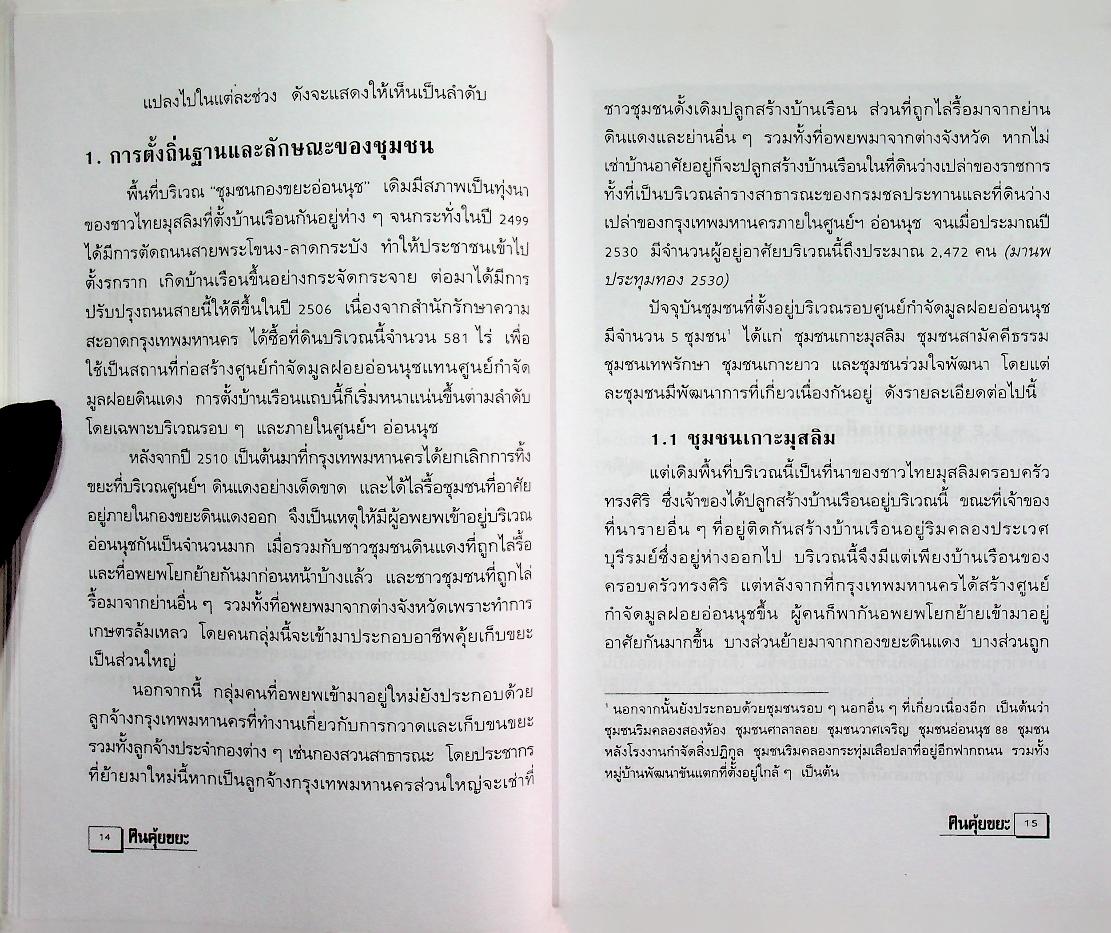 แปลงไปในแต่ละช่วง ดังจะแสดงให้เห็นเป็นลำดับ
1. การตั้งถิ่นฐานและลักษณะของชุมชน
พื้นที่บริเวณ “ชุมชนกองขยะอ่อนนุช” เดิมมีสภาพเป็นทุ่งนา
ของชาวไทยมุสลิมที่ตั้งบ้านเรือนกันอยู่ห่าง ๆ จนกระทั่งในปี 2499
ได้มีการตัดถนนสายพระโขนง-ลาดกระบัง ทำให้ประชาชนเข้าไป
ตั้งรกราก เกิดบ้านเรือนขึ้นอย่างกระจัดกระจาย ต่อมาได้มีการ
ปรับปรุงถนนสายนี้ให้ดีขึ้นในปี 2506 เนื่องจากสำนักรักษาความ
สะอาดกรุงเทพมหานคร ได้ซื้อที่ดินบริเวณนี้จำนวน 581 ไร่ เพื่อ
ใช้เป็นสถานที่ก่อสร้างศูนย์กำจัดมูลฝอยอ่อนนุชแทนศูนย์กำจัด
มูลฝอยดินแดง การตั้งบ้านเรือนแถบนี้ก็เริ่มหนาแน่นขึ้นตามลำดับ
โดยเฉพาะบริเวณรอบ ๆ และภายในศูนย์ฯ อ่อนนุช
หลังจากปี 2510 เป็นต้นมาที่กรุงเทพมหานครได้ยกเลิกการทิ้ง
ขยะที่บริเวณศูนย์ฯ ดินแดงอย่างเด็ดขาด และได้ไล่รื้อชุมชนที่อาศัย
อยู่ภายในกองขยะดินแดงออก จึงเป็นเหตุให้มีผู้อพยพเข้าอยู่บริเวณ
อ่อนนุชกันเป็นจำนวนมาก เมื่อรวมกับชาวชุมชนดินแดงที่ถูกไล่รื้อ
และที่อพยพโยกย้ายกันมาก่อนหน้าบ้างแล้ว และชาวชุมชนที่ถูกไล่
รื้อมาจากย่านอื่น ๆ รวมทั้งที่อพยพมาจากต่างจังหวัดเพราะทำการ
เกษตรล้มเหลว โดยคนกลุ่มนี้จะเข้ามาประกอบอาชีพคุ้ยเก็บขยะ
เป็นส่วนใหญ่
นอกจากนี้ กลุ่มคนที่อพยพเข้ามาอยู่ใหม่ยังประกอบด้วย
ลูกจ้างกรุงเทพมหานครที่ทำงานเกี่ยวกับการกวาดและเก็บขนขยะ
รวมทั้งลูกจ้างประจำกองต่าง ๆ เช่นกองสวนสาธารณะ โดยประชากร
ที่ย้ายมาใหม่นี้หากเป็นลูกจ้างกรุงเทพมหานครส่วนใหญ่จะเช่าที่
14 คนคุ้ยขยะ
ชาวชุมชนดั้งเดิมปลูกสร้างบ้านเรือน ส่วนที่ถูกไล่รื้อมาจากย่าน
ดินแดงและย่านอื่น ๆ รวมทั้งที่อพยพมาจากต่างจังหวัด หากไม่
เช่าบ้านอาศัยอยู่ก็จะปลูกสร้างบ้านเรือนในที่ดินว่างเปล่าของราชการ
ทั้งที่เป็นบริเวณลำรางสาธารณะของกรมชลประทานและที่ดินว่าง
เปล่าของกรุงเทพมหานครภายในศูนย์ฯ อ่อนนุช จนเมื่อประมาณปี
2530 มีจำนวนผู้อยู่อาศัยบริเวณนี้ถึงประมาณ 2,472 คน (มานพ
ประทุมทอง 2530)
ปัจจุบันชุมชนที่ตั้งอยู่บริเวณรอบศูนย์กำจัดมูลฝอยอ่อนนุช
มีจำนวน 5 ชุมชน¹ ได้แก่ ชุมชนเกาะมุสลิม ชุมชนสามัคคีธรรม
ชุมชนเทพรักษา ชุมชนเกาะยาว และชุมชนร่วมใจพัฒนา โดยแต่
ละชุมชนมีพัฒนาการที่เกี่ยวเนื่องกันอยู่ ดังรายละเอียดต่อไปนี้
1.1 ชุมชนเกาะมุสลิม
แต่เดิมพื้นที่บริเวณนี้เป็นที่นาของชาวไทยมุสลิมครอบครัว
ทรงศิริ ซึ่งเจ้าของได้ปลูกสร้างบ้านเรือนอยู่บริเวณนี้ ขณะที่เจ้าของ
ที่นารายอื่น ๆ ที่อยู่ติดกันสร้างบ้านเรือนอยู่ริมคลองประเวศ
บุรีรมย์ซึ่งอยู่ห่างออกไป บริเวณนี้จึงมีแต่เพียงบ้านเรือนของ
ครอบครัวทรงศิริ แต่หลังจากที่กรุงเทพมหานครได้สร้างศูนย์
กำจัดมูลฝอยอ่อนนุชขึ้น ผู้คนก็พากันอพยพโยกย้ายเข้ามาอยู่
อาศัยกันมากขึ้น บางส่วนย้ายมาจากกองขยะดินแดง บางส่วนถูก
¹ นอกจากนั้นยังประกอบด้วยชุมชนรอบ ๆ นอกอื่น ๆ ที่เกี่ยวเนื่องอีก เป็นต้นว่า
ชุมชนริมคลองสองห้อง ชุมชนศาลาลอย ชุมชนวาศเจริญ ชุมชนอ่อนนุช 88 ชุมชน
หลังโรงงานกำจัดสิ่งปฏิกูล ชุมชนริมคลองกระทุ่มเสือปลาที่อยู่อีกฟากถนน รวมทั้ง
หมู่บ้านพัฒนาขันแตกที่ตั้งอยู่ใกล้ ๆ เป็นต้น
คนคุ้ยขยะ 15